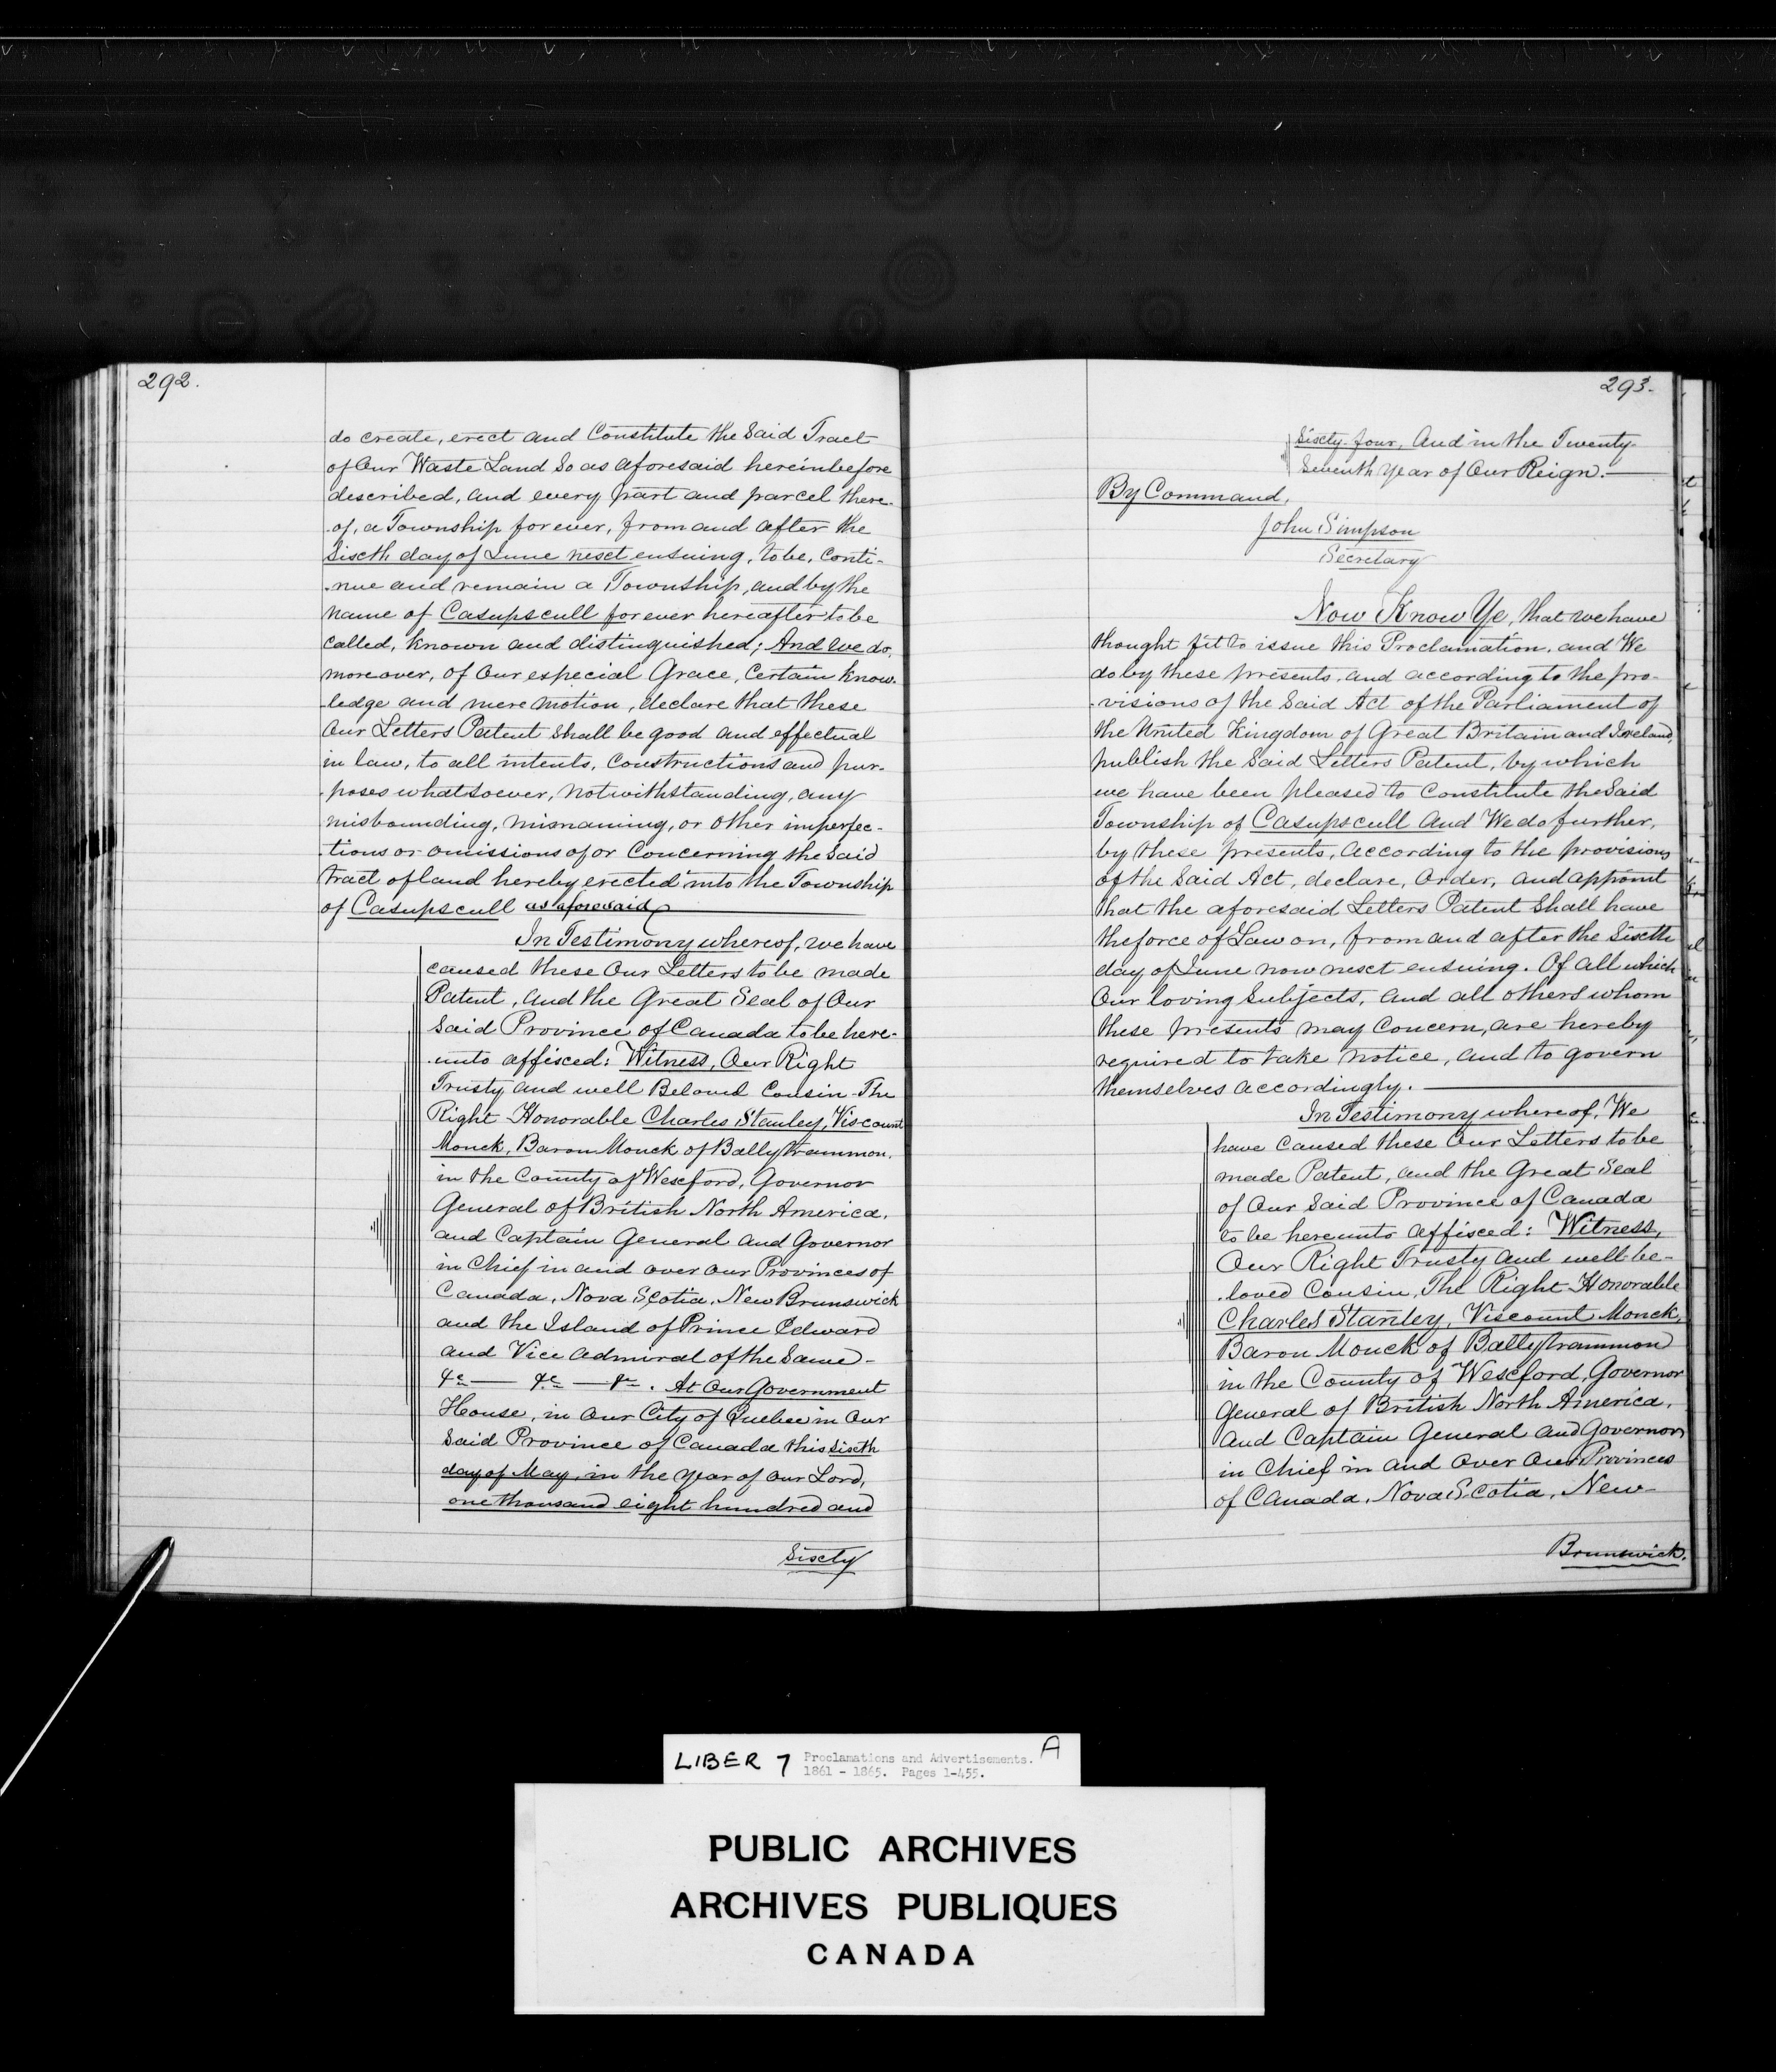 292.
do create, erect and Constitute the Said Tract
of Our Waste Land So as aforesaid hereinbefore
described, and every part and parcel there-
-of, a Township forever, from and after the
Sixth day of June next ensuing, to be, Conti-
-nue and remain a Township, and by the
name of Casupscull forever hereafter to be
Called, known and distinguished; And We do,
moreover, of Our especial Grace, Certain know-
-ledge and mere motion, declare that these
Our Letters Patent Shall be good and effectual
in law, to all intents, Constructions and pur-
-poses whatsoever, notwithstanding, any
misbounding, misnaming, or other imperfec-
-tions or omissions of or Concerning the Said
tract of land hereby erected into the Township
of Casupscull as aforesaid
In Testimony whereof, we have
caused these Our Letters to be made
Patent, and the Great Seal of Our
Said Province of Canada to be here-
-unto affixed: Witness, Our Right
Trusty and well Beloved Cousin The
Right Honorable Charles Stanley, Viscount
Monck, Baron Monck of Ballytrammon,
in the County of Wexford, Governor
General of British North America,
and Captain General and Governor
in Chief in and over our Provinces of
Canada, Nova Scotia, New Brunswick
and the Island of Prince Edward
and Vice Admiral of the Same -
&c — &c — &c. At Our Government
House, in Our City of Quebec in Our
Said Province of Canada this Sixth
day of May, in the year of our Lord,
one thousand eight hundred and
Sixty
293.
Sixty-four, And in the Twenty-
Seventh year of Our Reign.
By Command,
John Simpson
Secretary
Now Know Ye, that we have
thought fit to issue this Proclamation, and We
do by these presents, and according to the pro-
-visions of the Said Act of the Parliament of
the United Kingdom of Great Britain and Ireland,
publish the Said Letters Patent, by which
we have been pleased to Constitute the Said
Township of Casupscull And We do further,
by these presents, According to the provisions
of the Said Act, declare, Order, and appoint
that the aforesaid Letters Patent Shall have
the force of Law on, from and after the Sixth
day of June now next ensuing. Of all which
Our loving Subjects, and all others whom
these presents may Concern, are hereby
required to take notice, and to govern
themselves accordingly.
In Testimony whereof, We
have Caused these Our Letters to be
made Patent, and the Great Seal
of Our Said Province of Canada
to be hereunto affixed: Witness,
Our Right Trusty and well-be-
-loved Cousin, The Right Honorable
Charles Stanley, Viscount Monck,
Baron Monck of Ballytrammon
in the County of Wexford, Governor
General of British North America,
And Captain General and Governor
in Chief in and Over Our Provinces
of Canada, Nova Scotia, New-
Brunswick.
LIBER 7 Proclamations and Advertisements. A
1861 - 1865. Pages 1-455.
PUBLIC ARCHIVES
ARCHIVES PUBLIQUES
CANADA